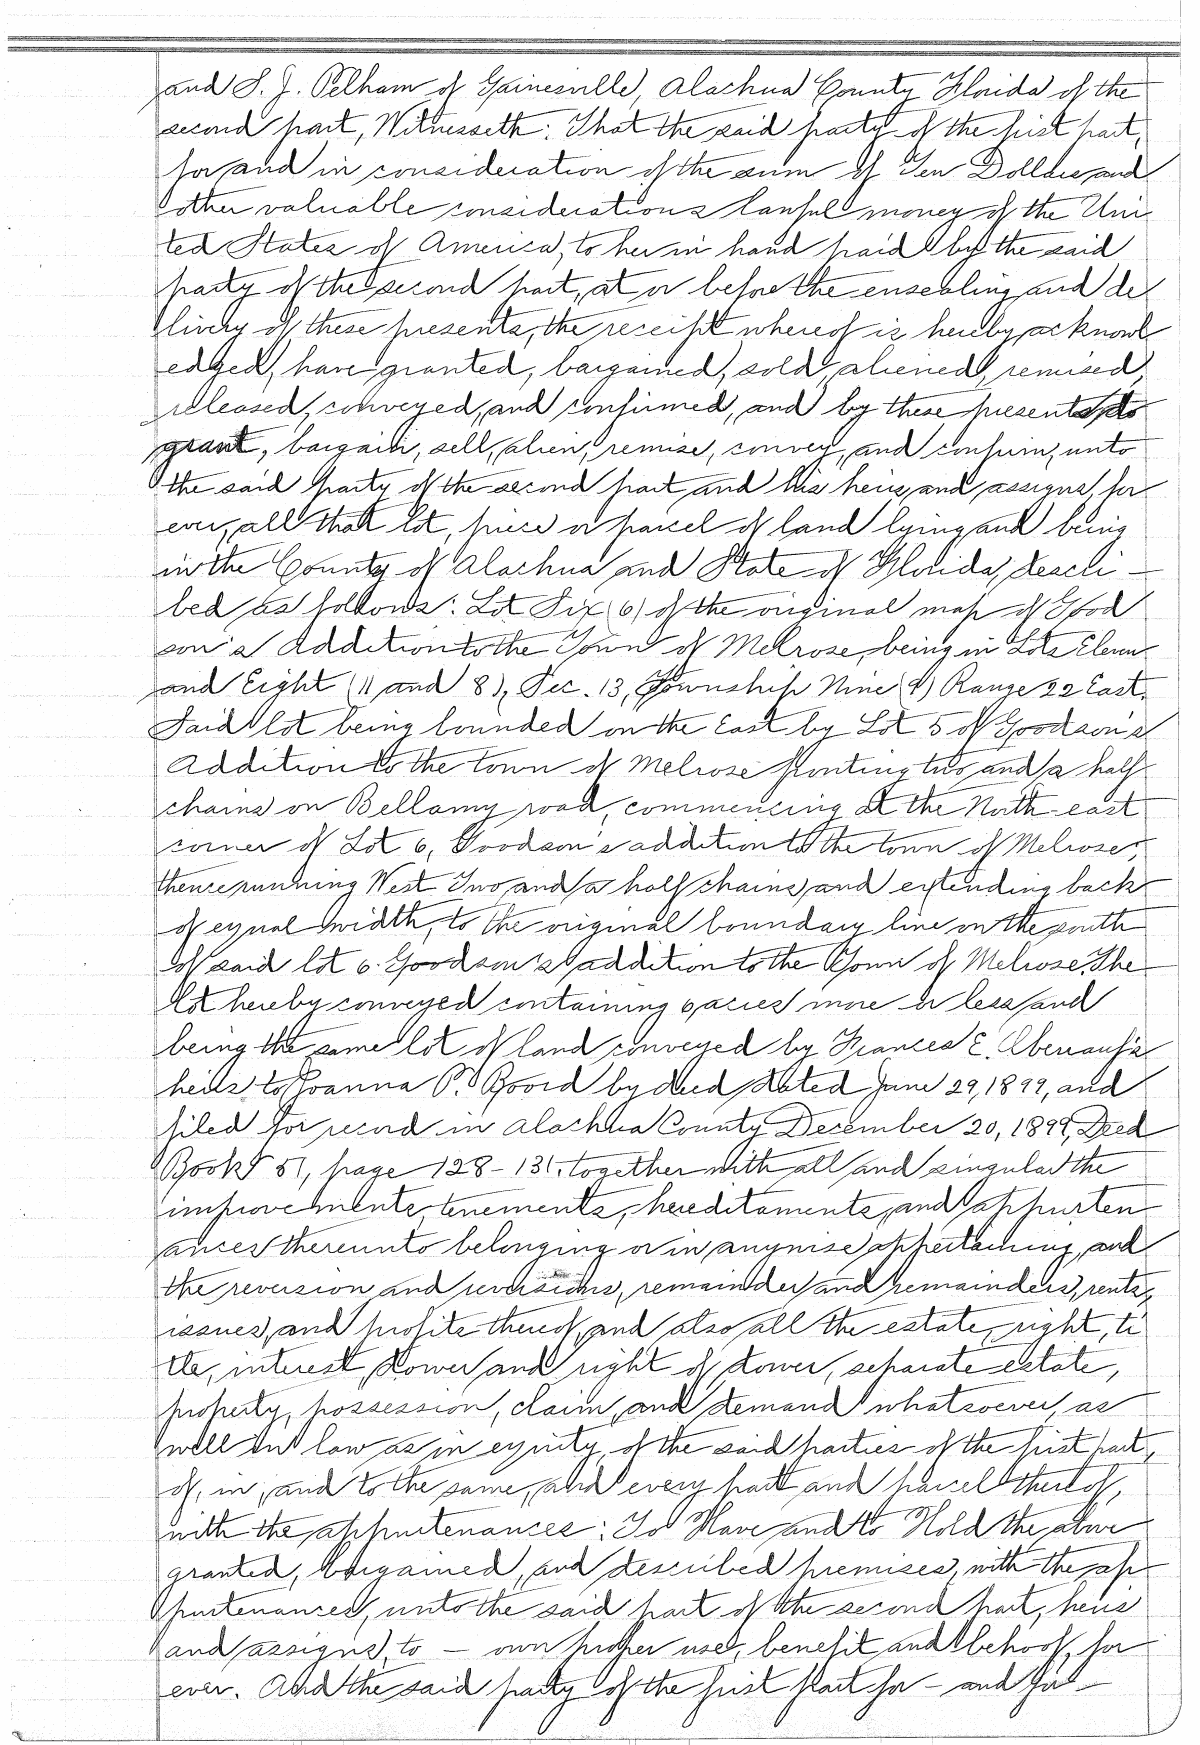 and S. J. Pelham of Gainesville, Alachua County Florida of the
second part, Witnesseth: That the said party of the first part,
for and in consideration of the sum of Ten Dollars and
other valuable considerations lawful money of the Uni
ted States of America, to her in hand paid by the said
party of the second part, at or before the ensealing and de
livery of these presents, the receipt whereof is hereby acknowl
edged, have granted, bargained, sold, aliened, remised,
released, conveyed, and confirmed, and by these presents do
grant, bargain, sell, alien, remise, convey, and confirm, unto
the said party of the second part and his heirs, and assigns, for
ever, all that lot, piece or parcel of land lying and being
in the County of Alachua and State of Florida, descri-
bed as follows: Lot Six (6) of the original map of Good
son's Addition to the Town of Melrose, being in Lots Eleven
and Eight (11 and 8), Sec. 13, Township Nine (9) Range 22 East.
Said lot being bounded on the East by Lot 5 of Goodson's
Addition to the town of Melrose fronting two and a half
chains on Bellamy road, commencing at the North-east
corner of Lot 6, Goodson's addition to the town of Melrose,
thence running West Two and a half chains, and extending back
of equal width, to the original boundary line on the south
of said lot 6. Goodson's addition to the Town of Melrose. The
lot hereby conveyed containing 6 acres more or less and
being the same lot of land conveyed by Frances E.
heirs to Joanna P. by deed dated June 29, 1899, and
filed for record in Alachua County December 20, 1899, Deed
Book 51, page 128-131, together with all and singular the
improvements, tenements, hereditaments, and appurten
ances thereunto belonging or in anywise appertaining, and
the reversion and reversions, remainder and remainders, rents,
issues, and profits thereof, and also all the estate, right, ti
tle, interest, dower and right of dower, separate estate,
property, possession, claim, and demand whatsoever, as
well in law as in equity, of the said parties of the first part,
of, in, and to the same, and every part and parcel thereof,
with the appurtenances: To Have and to Hold the above
granted, bargained, and described premises, with the ap
purtenances, unto the said part of the second part, heirs
and assigns, to - own proper use, benefit and behoof, for
ever. And the said party of the first part for - and for -